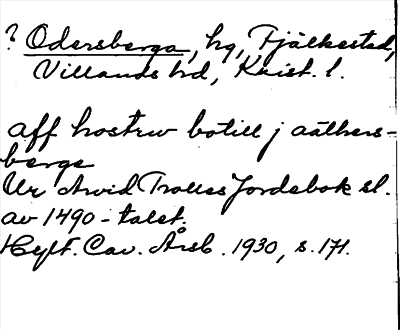 ? Odersberga, hg, Fjälkestad,
Villands hd, Krist. l.
aff hostrw botill j aathers-
berge
Ur Arvid Trolles Jordebok sl.
av 1490-talet.
Hyft. Cav. Årsb. 1930, s. 171.